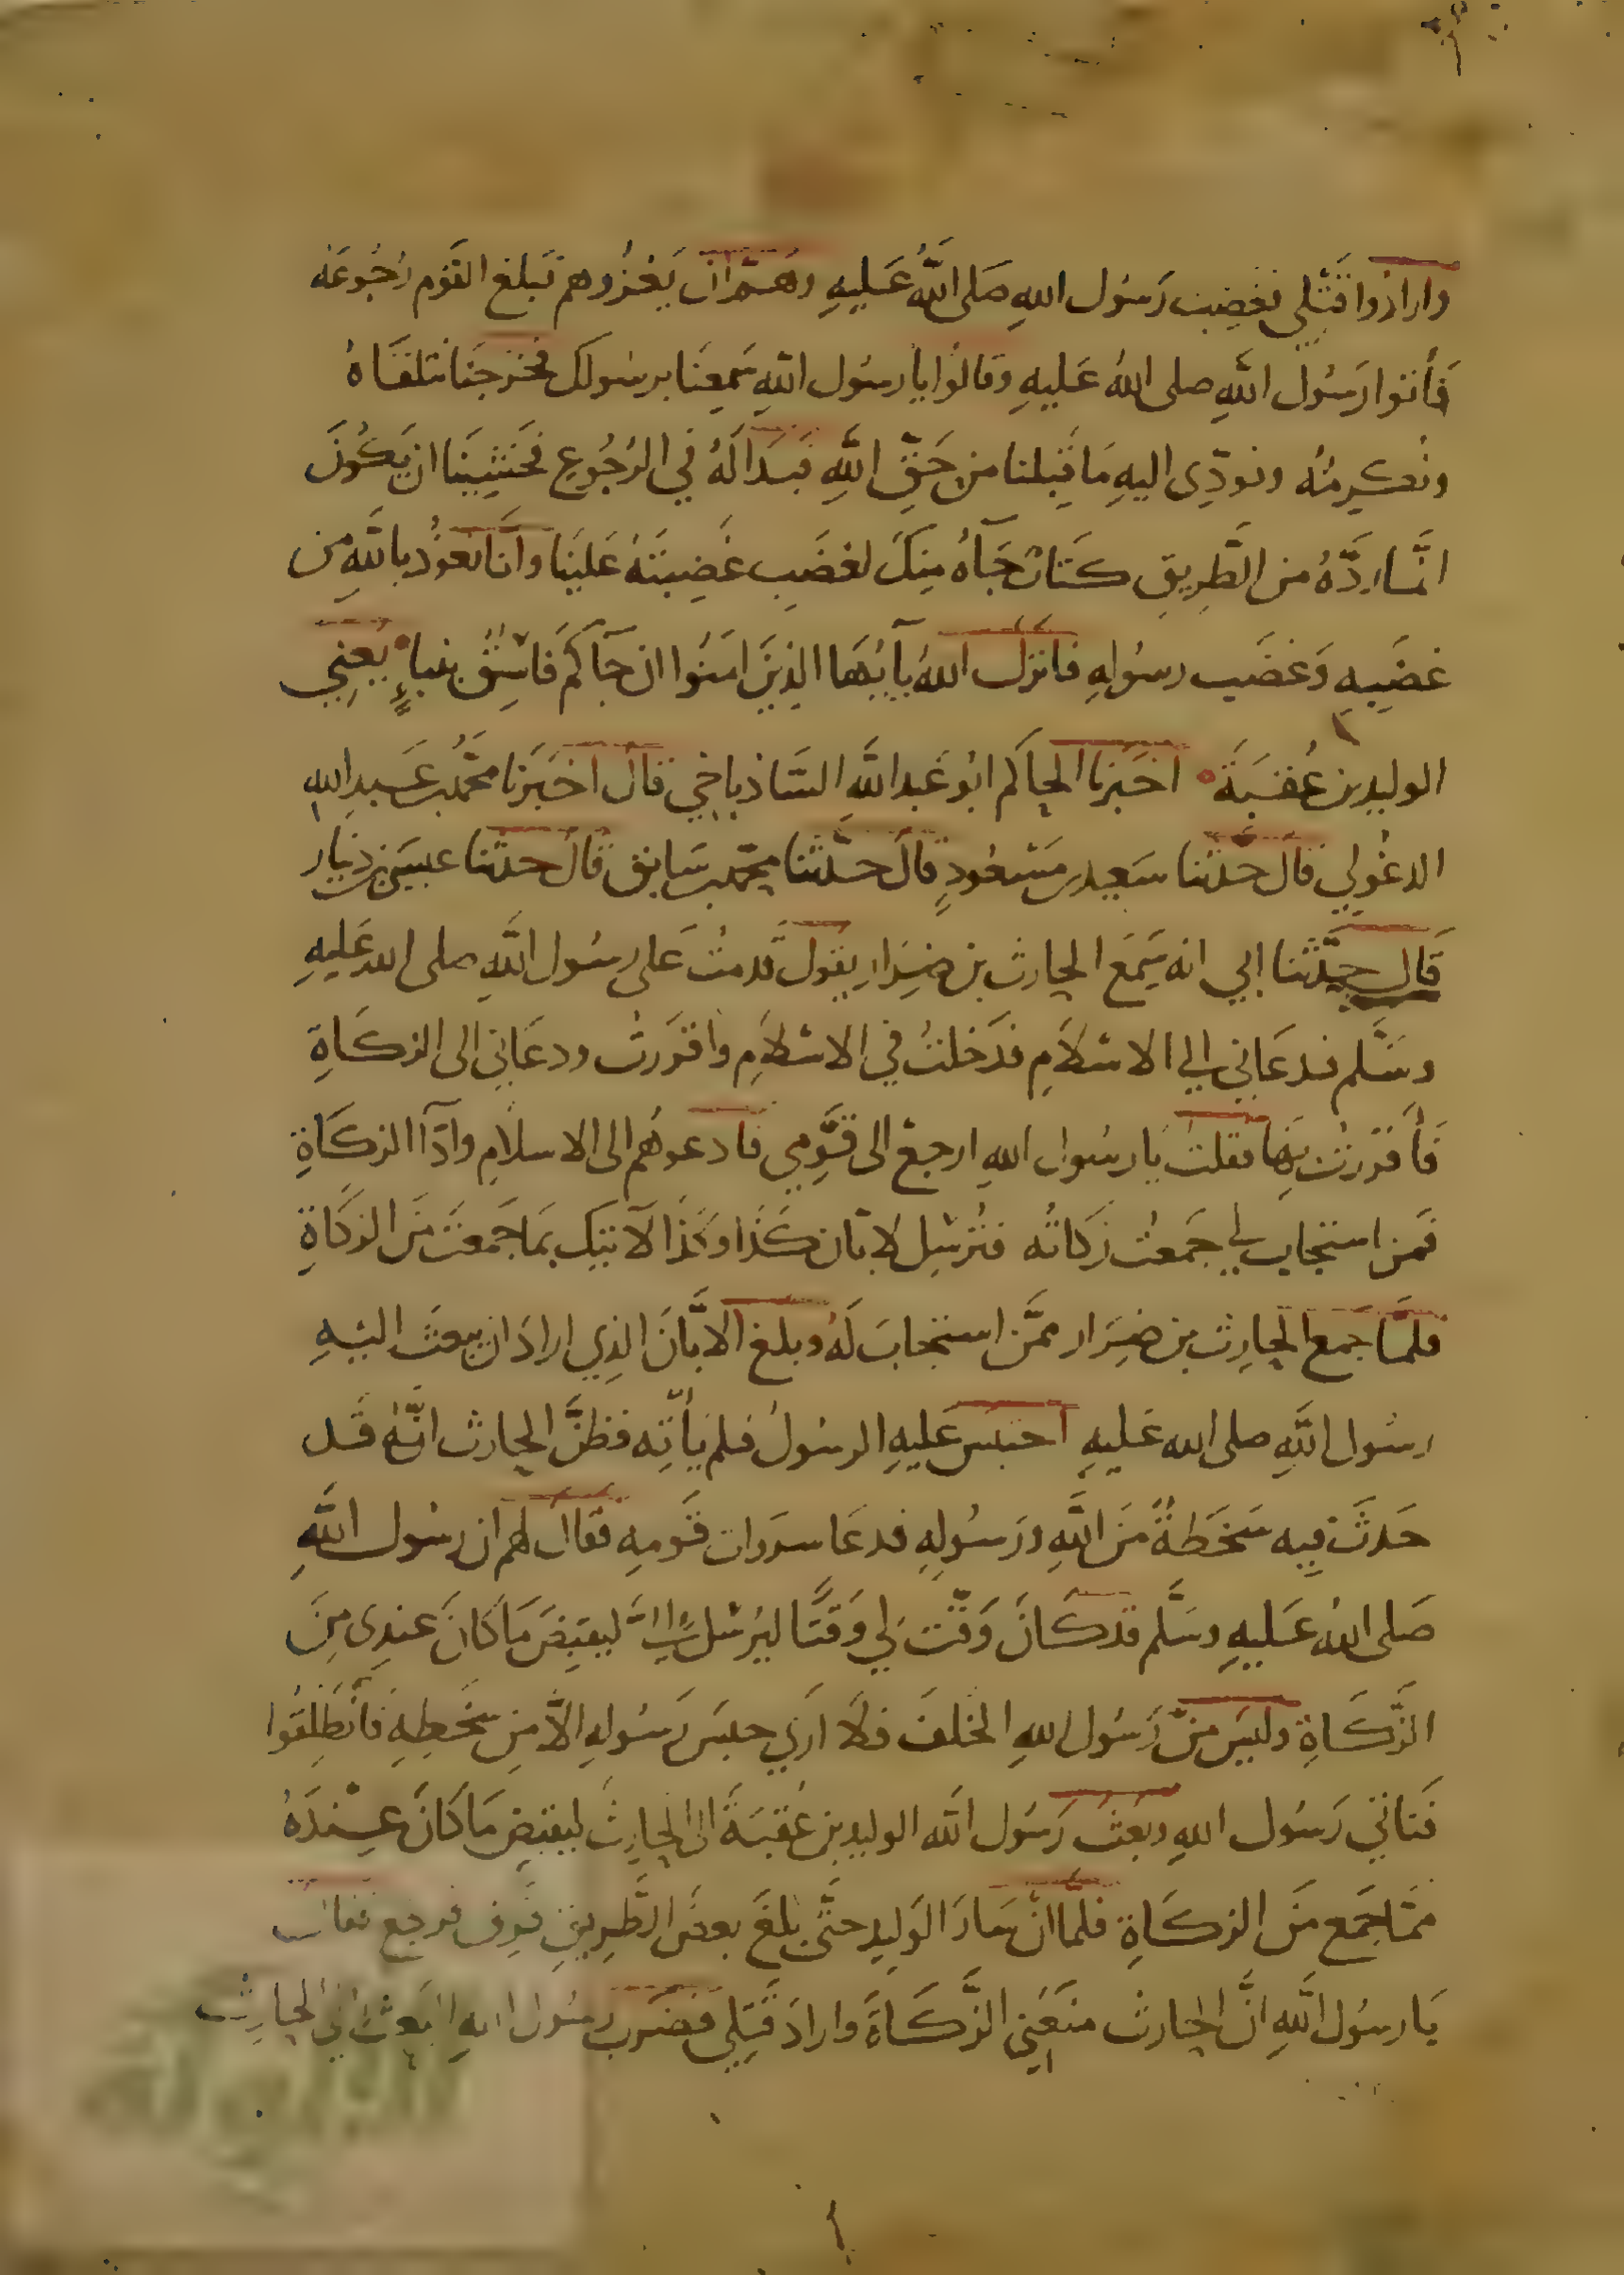 وارادوا قَتْلِي فغضِب رَسُول اللهِ صَلى اللَّهُ عَليهِ وهَمّ ان يَغْزُوهم فبلغ القَوْم رُجُوعَه
فَأَتوا رَسُولَ اللَّهِ صلى اللهُ عَليهِ وقالوُا يا رسُول اللَّهِ سَمِعنَا برسولك فخرجنَا نتلقاهُ
ونُكرِمُه ونودِّى اليهِ مَا قِبَلنا من حَقِّ اللَّهِ فبَدَا لَهُ في الرُجُوعِ فخشِينَا ان يَكُونَ
انَّما رَدَّهُ من الطَّرِيقِ كتَابٌ جَآهُ مِنكَ لغَضَبٍ غَضِبتَهُ عَلَينا وانَّا نَعوُذ باللَّهِ من
غضَبِهِ وَغضَب رسُولِهِ فانزل اللهُ يآيُهَا الذِينَ امَنُوا ان جآكم فَاسِقٌ بنباءٍ يَعنِي
الوليد بن عُقبَةَ اخبَرنا الحاكم ابُو عَبد اللَّهِ الشاذياخي قال اخبَرَنا محَّمد بن عَبد اللهِ
الدغُولي قالَ حَدّثنا سَعِيد بن مَسْعُودٍ قالَ حدَّثنا محمّد بن سَابق قالَ حدثنا عيسَى بن دينار
قَالَ حَدَّثنا ابي انه سَمِعَ الحارث بن ضِرَارٍ يقول قَدمتُ عَلى رسُول اللَّهِ صلى الله عَليهِ
وسَلَّم فدعَاني الى الاسْلاَمِ فدَخلتُ في الاسْلاَمِ واقرَرتُ ودعَاني الى الزكَاةِ
فَأَقرَرتُ بِهَا فقلتُ يَا رسُول اللهِ ارجعُ الى قَوِمِي فادعوهُم الى الاسلامِ واَدآا الزكاةِ
فَمن استجاب لي جَمَعتُ زكاتُه فتُرسِل لابَّان كَذا وكَذا لآتيك بمَا جَمعتُ مَن الزكَاةِ
فلمَّا جَمع الحارِث بن ضِرَار ممَّن استجابَ لَهُ وبلغ الابَّانَ الذِي ارادَ ان يبعَث اليهِ
رسُول اللَّهِ صلى الله عَليهِ احتبسَ عَليهِ الرسُولُ فلم يَأتِه فظنَّ الحارث انَّهُ قَد
حَدثَ فِيه سَخطَةٌ مَن اللَّهِ ورَسُولِهِ فدعَا سروات قَومهِ فقالَ لهم ان رسُول اللَّهِ
صَلى اللهُ عَليهِ وسَلَّم قد كَانَ وَقَّتَ لِي وَقتًا ليُرْسل إِلىَّ ليقبِضَ مَا كَانَ عندِى مِنَ
الزَّكَاةِ وليسَ منْ رَسُول اللهِ الخلفَ فلا ارَي حبسَ رَسُولهِ الاَّ مِن سَخطِهِ فأنطَلِقُوا
فَناتي رَسُول اللهِ وبَعثَ رَسُول اللَّه الوليد بن عُقبَةَ الى الحارِث ليقبضَ مَا كَانَ عِندَهُ
ممّا جَمع مَن الزكَاةِ فلمَّا انْ سَارَ الوَلِيد حتَّى بَلغَ بعضَ الطَّرِيقِ فَرِق فرجع فقال
يَا رسُول اللَّهِ انَّ الحارث مَنعَنِي الزَّكَاةَ وارادَ قَتلِي فضرَبَ رسُول اللهِ البَعثَ الى الحارِث